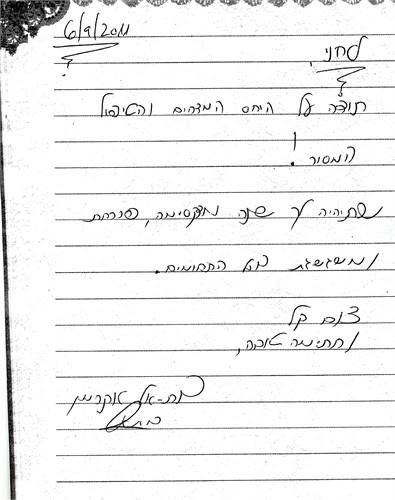 6/9/2011
לחני,
תודה על היחס המדהים והטיפול
המסור!
שתיהיה לך שנה מקסימה, פורחת
ומשגשגת בכל התחומים.
צום קל
וחתימה טובה,
בת-אל